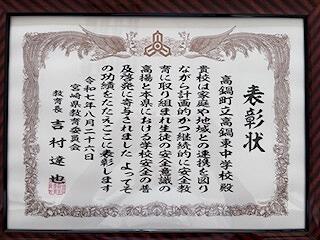 表彰状
高鍋町立高鍋東中学校 殿
貴校は家庭や地域との連携を図り
ながら計画的かつ継続的に安全教
育に取り組まれ生徒の安全意識の
高揚と本県における学校安全の普
及啓発に寄与されました よってそ
の功績をたたえここに表彰します
令和七年八月二十六日
宮崎県教育委員会
教育長 吉村達也